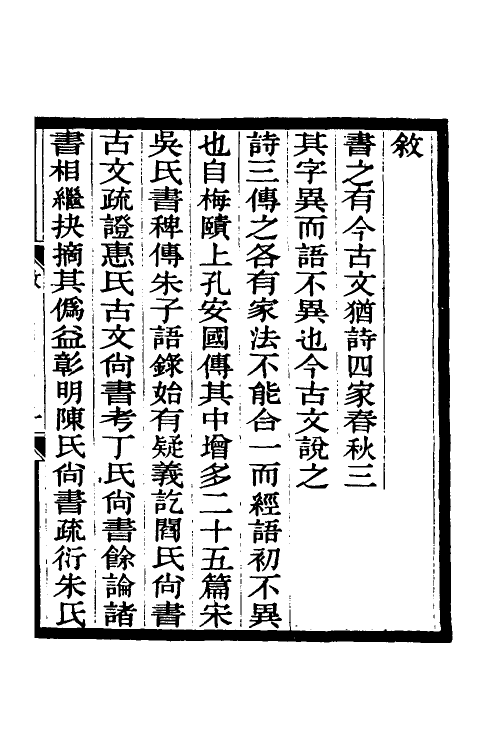 敘
書之有今古文猶詩四家春秋三
其字異而語不異也今古文說之
詩三傳之各有家法不能合一而經語初不異
也自梅賾上孔安國傳其中增多二十五篇宋
吳氏書稗傳朱子語錄始有疑義訖閻氏尚書
古文疏證惠氏古文尚書考丁氏尚書餘論諸
書相繼抉摘其僞益彰明陳氏尚書疏衍朱氏